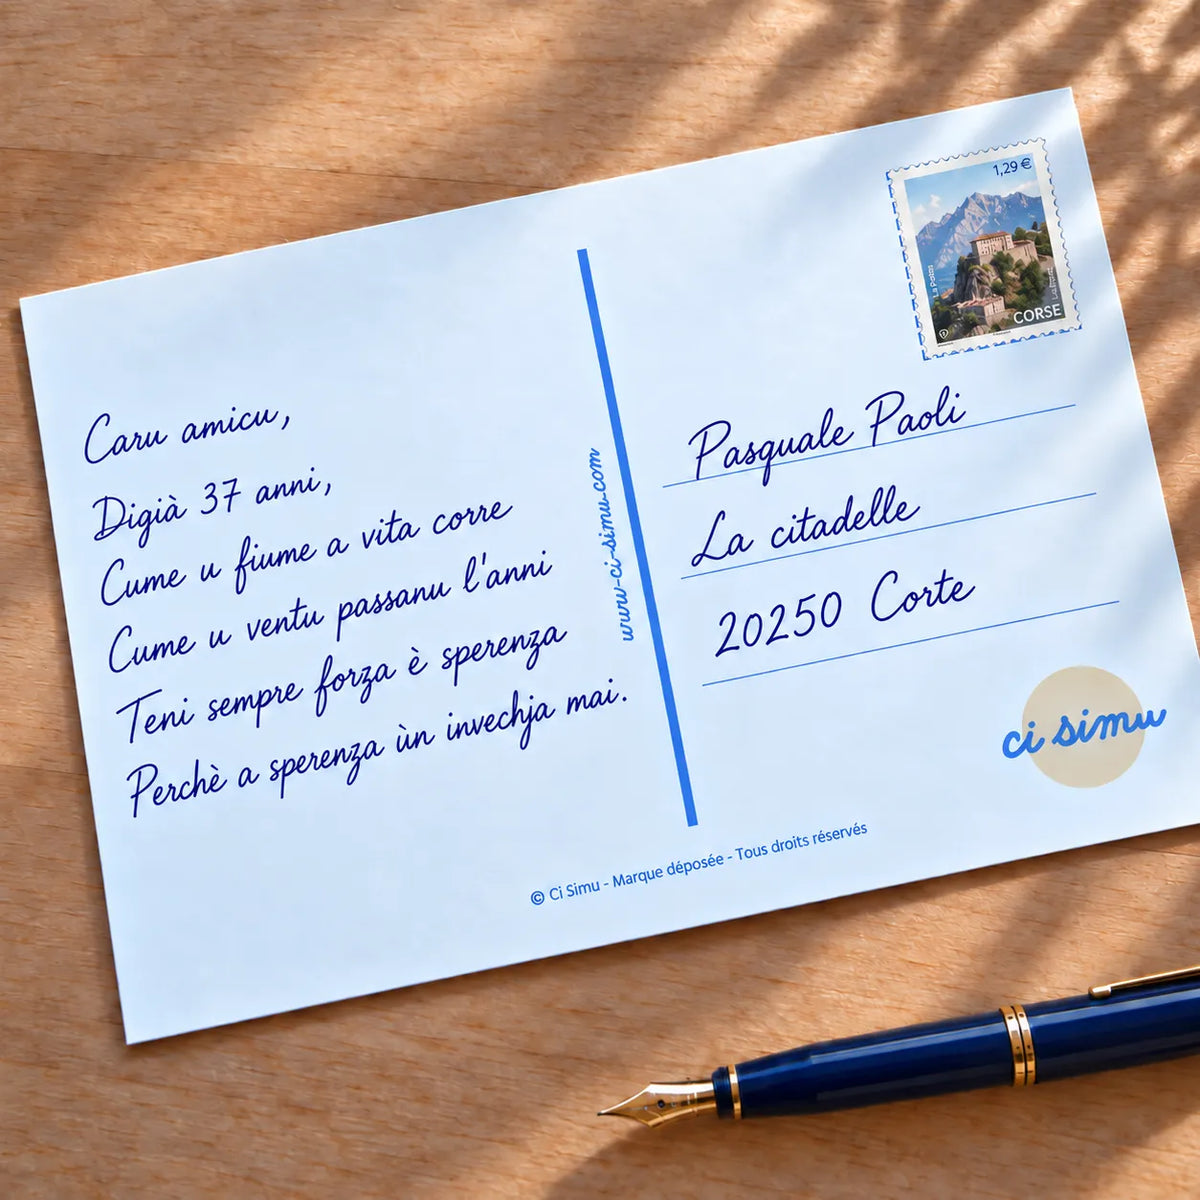 Caru amicu,
Digià 37 anni,
Cume u fiume a vita corre
Cume u ventu passanu l'anni
Teni sempre forza è sperenza
Perchè a sperenza ùn invechja mai.
www-ci-simu.com
1,29 €
La Poste
CORSE
Pasquale Paoli
La citadelle
20250 Corte
ci simu
© Ci Simu - Marque déposée - Tous droits réservés